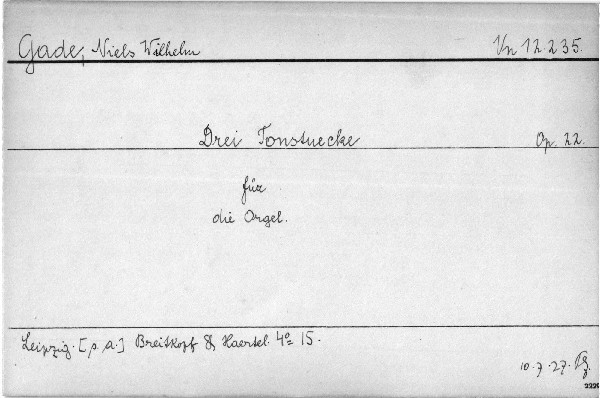 Gade, Niels Wilhelm Vn 12.235.
Drei Tonstuecke Op. 22.
für
die Orgel.
Leipzig. [s. a.] Breitkopf & Haertel. 4º 15.
10.7.27.